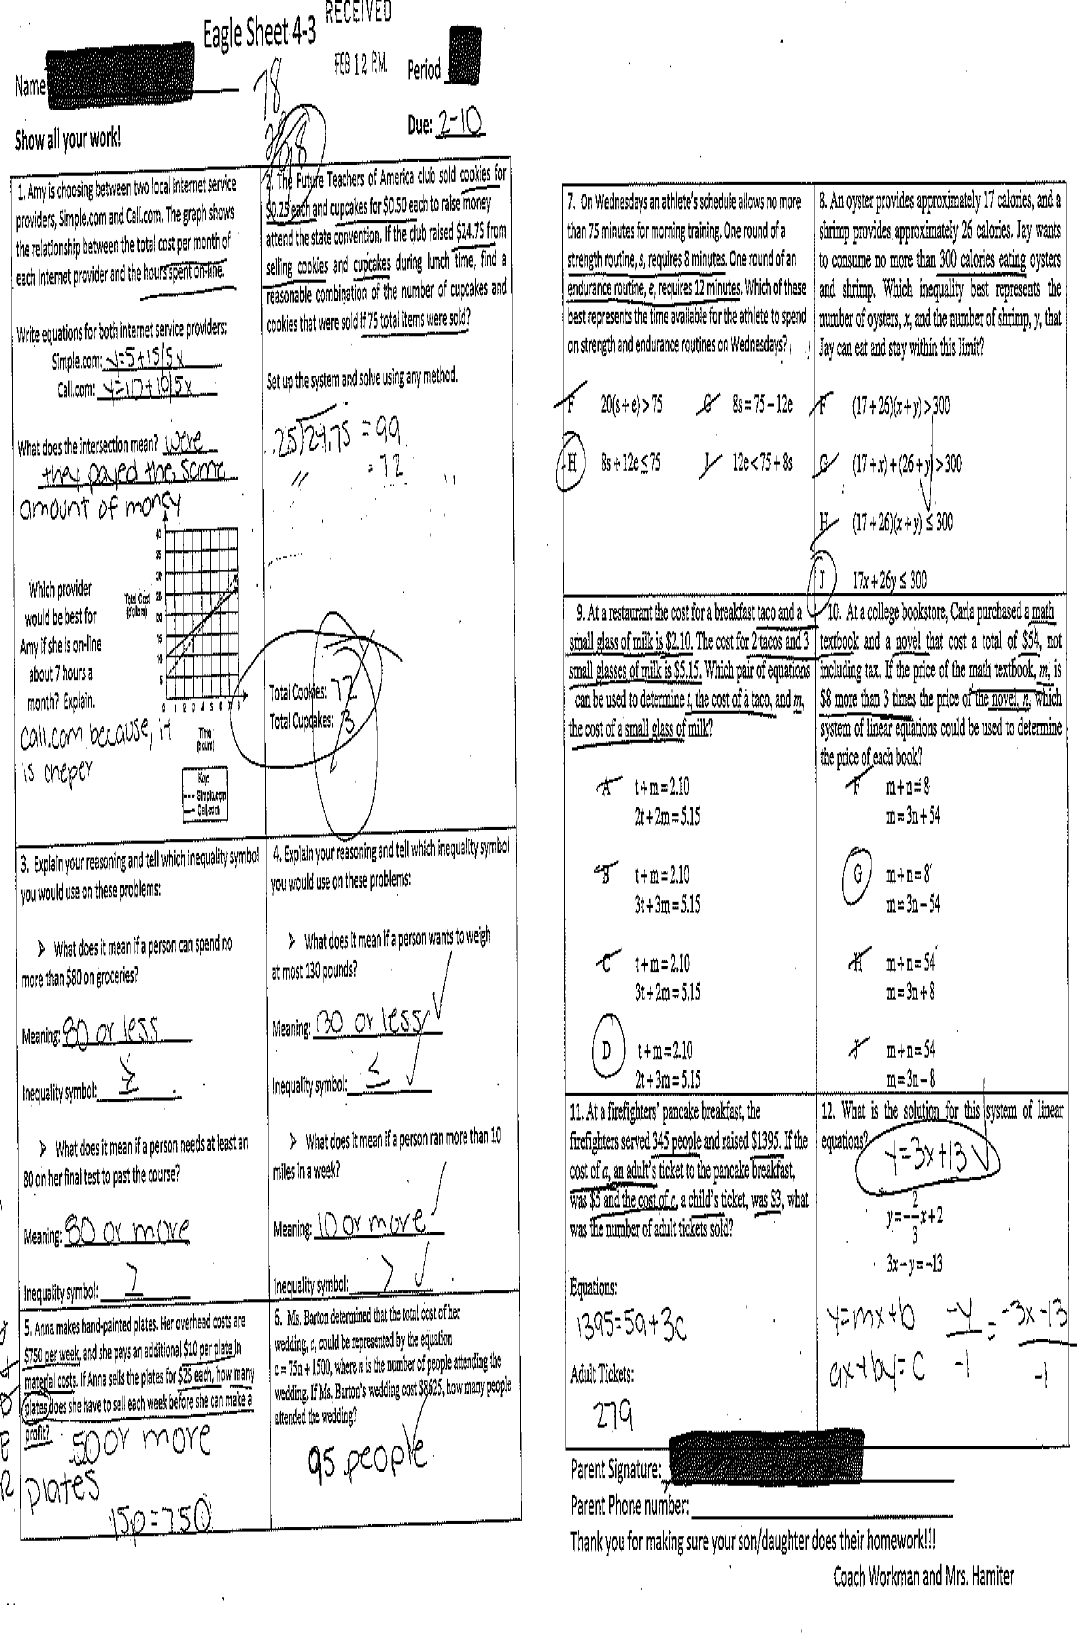 Eagle Sheet 4-3
RECEIVED
FEB 12 P.M.
Name
Period
78
98
Show all your work!
Due: 2-10
1. Amy is choosing between two local Internet service
providers, Simple.com and Call.com. The graph shows
the relationship between the total cost per month of
each Internet provider and the hours spent on-line.
Write equations for both internet service providers:
Simple.com: y=5+15/5x
Call.com: y=17+10/5x
What does the intersection mean? were
they payed the same
amount of money
Which provider
would be best for
Amy if she is on-line
about 7 hours a
month? Explain.
Call.com because, it
is cheper
Total Cost
(dollars)
40
35
30
25
20
15
10
5
0 1 2 3 4 5 6 7 8
Time
(hours)
Key
Simple.com
Call.com
2. The Future Teachers of America club sold cookies for
$0.25 each and cupcakes for $0.50 each to raise money
attend the state convention. If the club raised $24.75 from
selling cookies and cupcakes during lunch time, find a
reasonable combination of the number of cupcakes and
cookies that were sold if 75 total items were sold?
Set up the system and solve using any method.
.25 24.75 = 99
= 72
Total Cookies: 72
Total Cupcakes: 3
3. Explain your reasoning and tell which inequality symbol
you would use on these problems:
➢ What does it mean if a person can spend no
more than $80 on groceries?
Meaning: 80 or less
Inequality symbol:
➢ What does it mean if a person needs at least an
80 on her final test to past the course?
Meaning: 80 or more
Inequality symbol: >
4. Explain your reasoning and tell which inequality symbol
you would use on these problems:
➢ What does it mean if a person wants to weigh
at most 130 pounds?
Meaning: 130 or less
Inequality symbol: ≤
➢ What does it mean if a person ran more than 10
miles in a week?
Meaning: 10 or more
Inequality symbol: >
5. Anna makes hand-painted plates. Her overhead costs are
$750 per week, and she pays an additional $10 per plate in
material costs. If Anna sells the plates for $25 each, how many
plates does she have to sell each week before she can make a
profit?
50 or more
plates
15p=750
6. Ms. Barton determined that the total cost of her
wedding, c, could be represented by the equation
c = 75n + 1500, where n is the number of people attending the
wedding. If Ms. Barton's wedding cost $8625, how many people
attended the wedding?
95 people
7. On Wednesdays an athlete's schedule allows no more
than 75 minutes for morning training. One round of a
strength routine, s, requires 8 minutes. One round of an
endurance routine, e, requires 12 minutes. Which of these
best represents the time available for the athlete to spend
on strength and endurance routines on Wednesdays?
F 20(s + e) > 75 G 8s = 75 – 12e
H 8s + 12e ≤ 75 J 12e < 75 + 8s
8. An oyster provides approximately 17 calories, and a
shrimp provides approximately 26 calories. Jay wants
to consume no more than 300 calories eating oysters
and shrimp. Which inequality best represents the
number of oysters, x, and the number of shrimp, y, that
Jay can eat and stay within this limit?
F (17 + 26)(x + y) > 300
G (17 + x) + (26 + y) > 300
H (17 + 26)(x + y) ≤ 300
J 17x + 26y ≤ 300
9. At a restaurant the cost for a breakfast taco and a
small glass of milk is $2.10. The cost for 2 tacos and 3
small glasses of milk is $5.15. Which pair of equations
can be used to determine t, the cost of a taco, and m,
the cost of a small glass of milk?
A t + m = 2.10
2t + 2m = 5.15
B t + m = 2.10
3t + 3m = 5.15
C t + m = 2.10
3t + 2m = 5.15
D t + m = 2.10
2t + 3m = 5.15
10. At a college bookstore, Carla purchased a math
textbook and a novel that cost a total of $54, not
including tax. If the price of the math textbook, m, is
$8 more than 3 times the price of the novel, n, which
system of linear equations could be used to determine
the price of each book?
F m + n = 8
m = 3n + 54
G m + n = 8
m = 3n – 54
H m + n = 54
m = 3n + 8
J m + n = 54
m = 3n – 8
11. At a firefighters' pancake breakfast, the
firefighters served 345 people and raised $1395. If the
cost of a, an adult's ticket to the pancake breakfast,
was $5 and the cost of c, a child's ticket, was $3, what
was the number of adult tickets sold?
Equations:
1395=5a+3c
Adult Tickets:
279
12. What is the solution for this system of linear
equations?
y=3x+13
y = –2/3x + 2
3x – y = –13
y=mx+b -y/-1 = -3x-13/-1
ax+by=c
Parent Signature:
Parent Phone number:
Thank you for making sure your son/daughter does their homework!!!
Coach Workman and Mrs. Hamiter